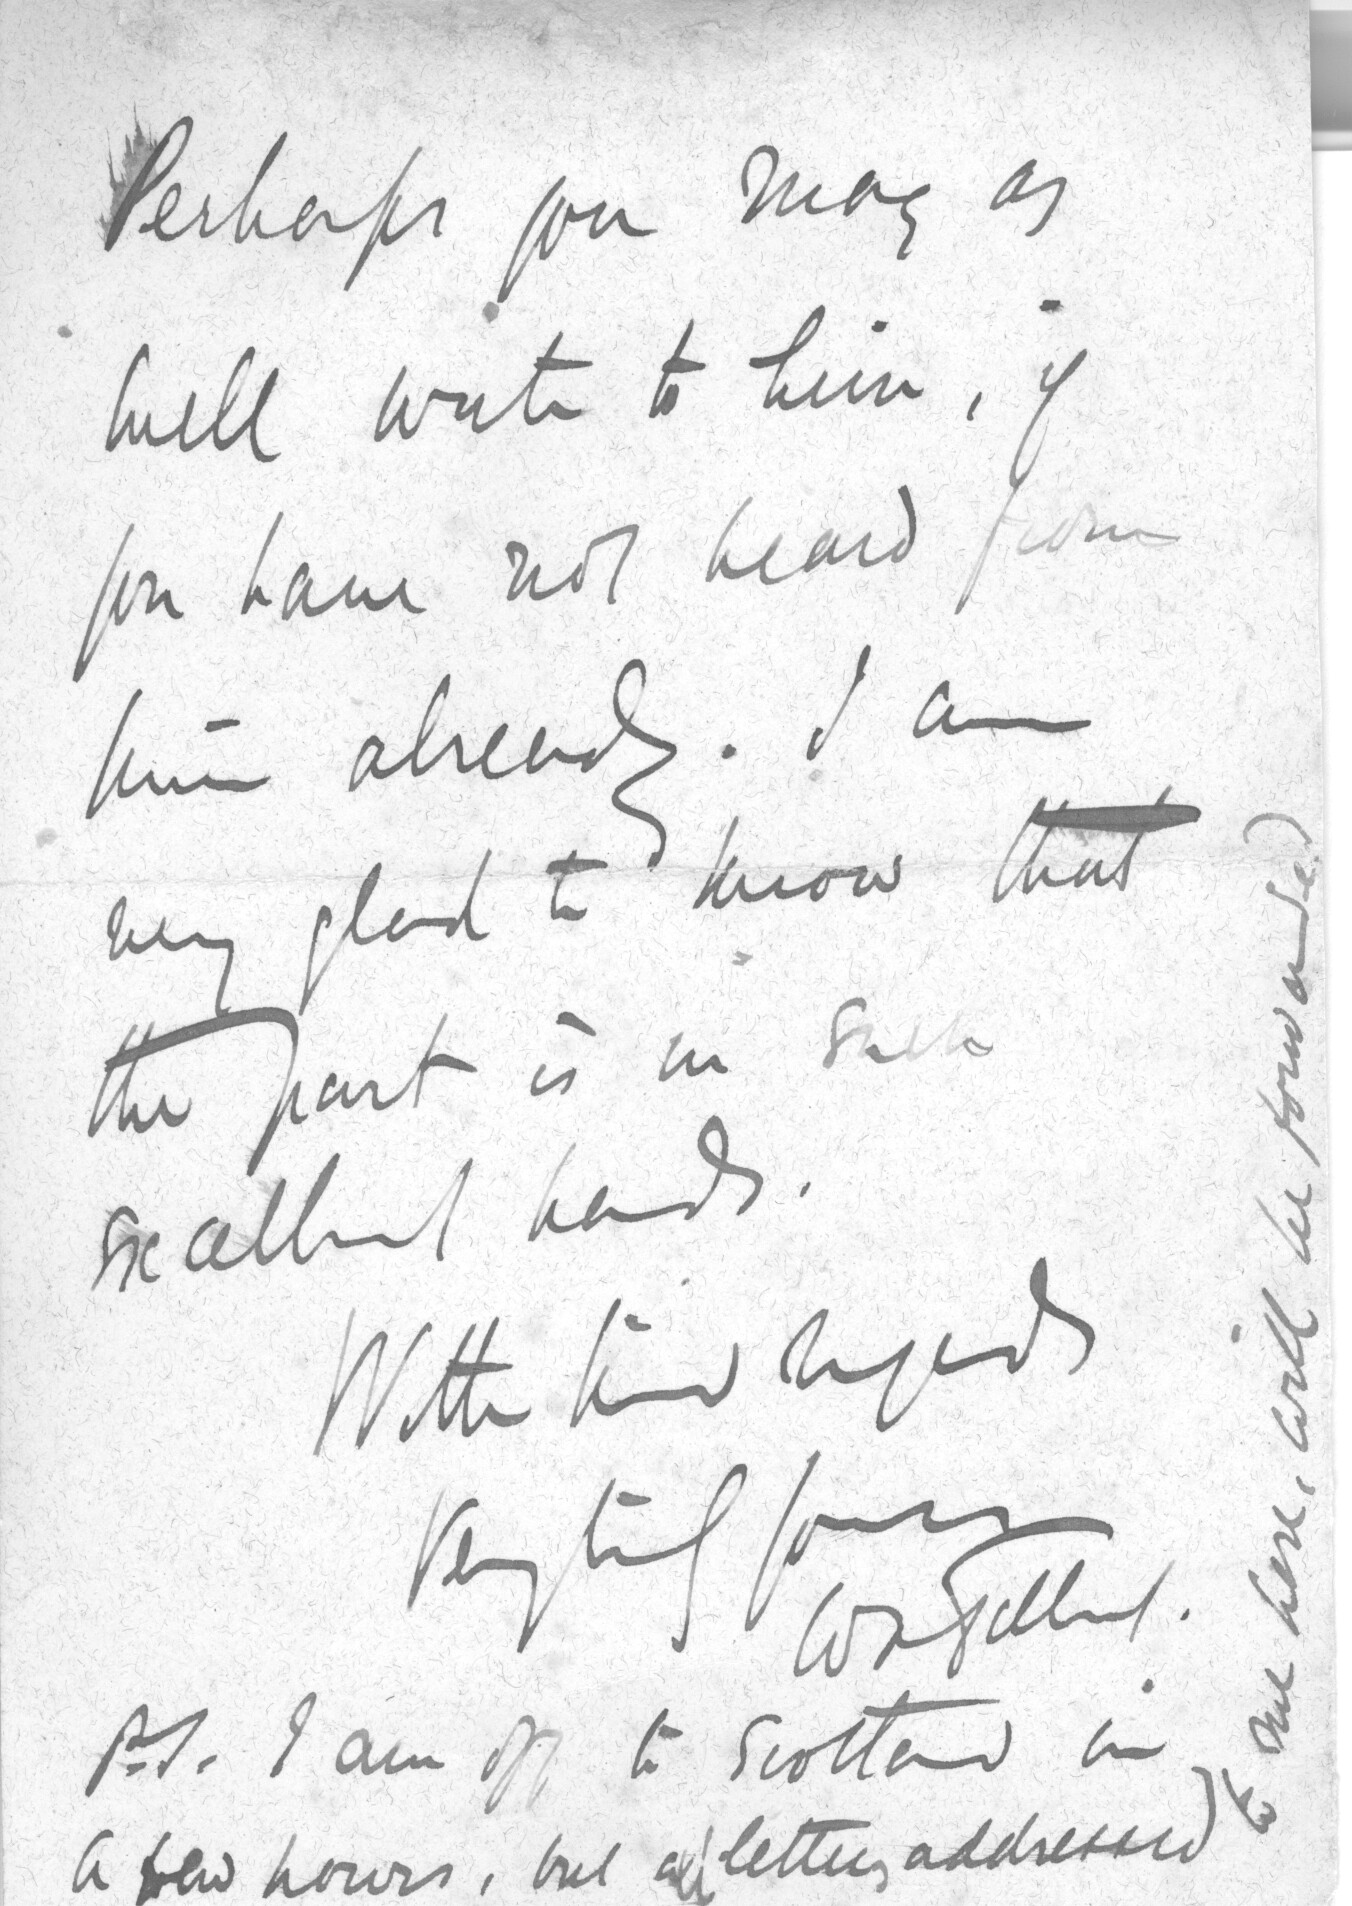 Perhaps you may as
well write to him, if
you have not heard from
him already. I am
very glad to know that
the part is in such
excellent hands.
With kind regards
Very truly yours
WSGilbert.
P.S. I am off to Scotland in
a few hours, but all letters addressed
to me here, will be forwarded